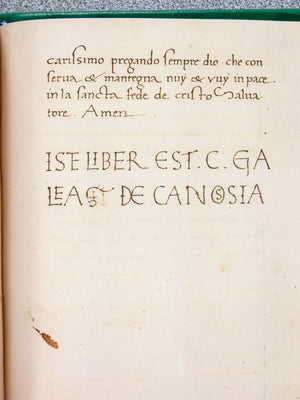 carissimo pregando sempre dio che con
serva & mantegna nuÿ & vuÿ in pace
in la sancta fede de cristo Salva
tore. Amen.
ISTE LIBER EST. C. GA
LEAꝫ DE CANOSIA